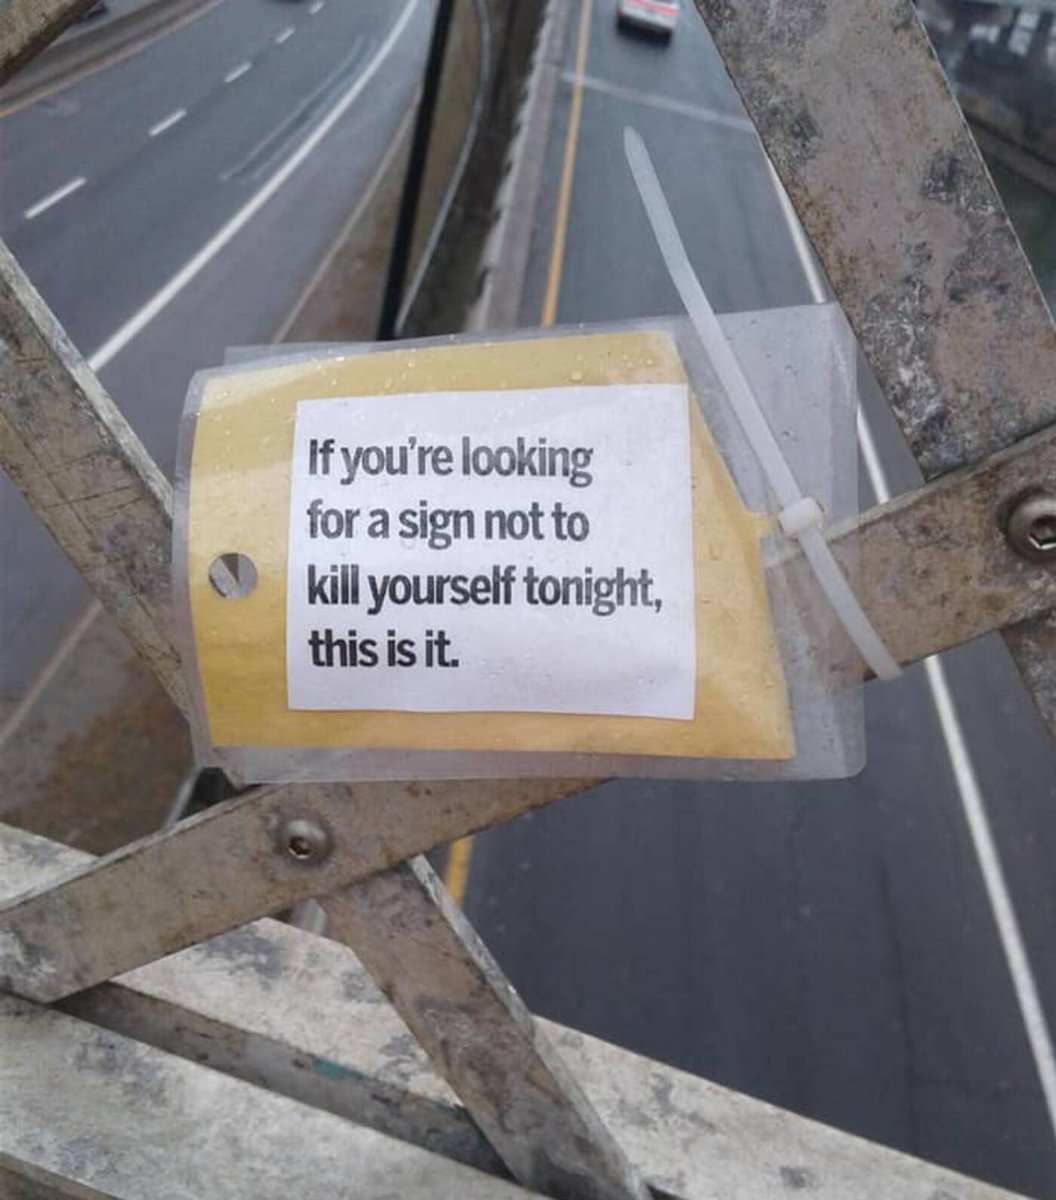 If you're looking
for a sign not to
kill yourself tonight,
this is it.